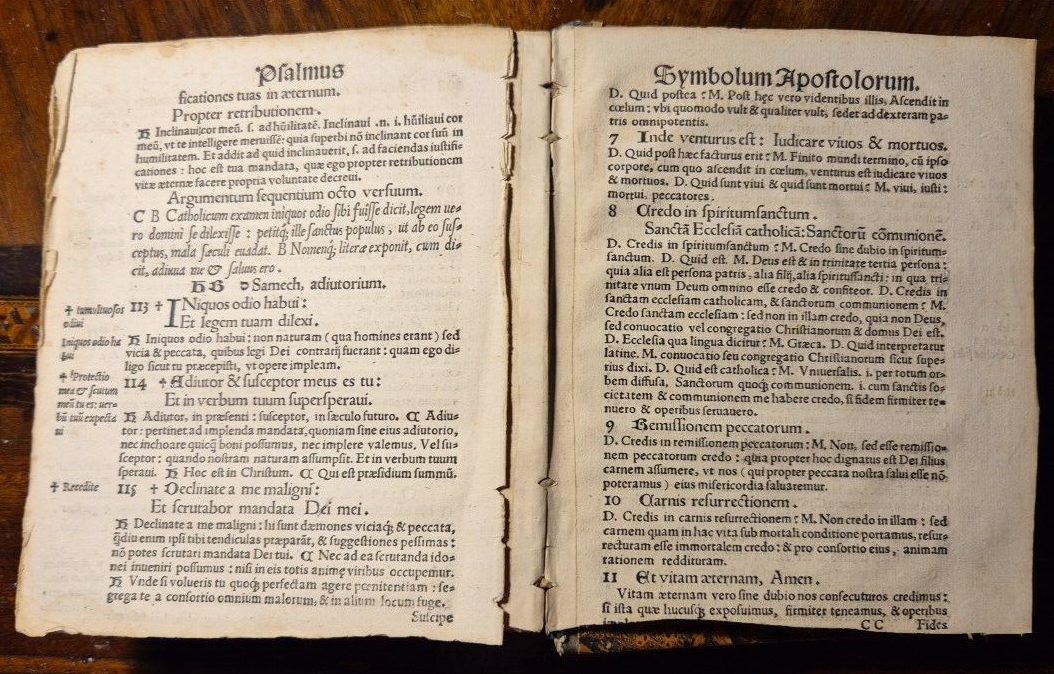 Psalmus
ficationes tuas in æternum.
Propter retributionem.
H Inclinaui cor meũ. s. ad hũilitatẽ. Inclinaui .n. i. hũiliaui cor
meũ, vt te intelligere meruissẽ: quia superbi nõ inclinant cor suũ in
humilitatem. Et addit ad quid inclinauerit, s. ad faciendas iustifi-
cationes : hoc est tua mandata, quæ ego propter retributionem
vitæ æternæ facere propria voluntate decreui.
Argumentum sequentium octo versuum.
C B Catholicum examen iniquos odio sibi fuisse dicit, legem ue-
ro domini se dilexisse : petitq; ille sanctus populus, ut ab eo sus-
ceptus, mala sæculi euadat. B Nomenq; literæ exponit, cum di-
cit, adiuua me & saluus ero.
H B ס Samech, adiutorium.
✝ tumultuosos
odiui
113 ✝ INiquos odio habui :
Et legem tuam dilexi.
Iniquos odio ha
bui
H Iniquos odio habui: non naturam ( qua homines erant ) sed
vicia & peccata, quibus legi Dei contrarij fuerant : quam ego di-
ligo sicut tu præcepisti, vt opere impleam.
✝ Protectio
mea & scutum
meũ tu es: uer-
bũ tuũ expecta
ui
114 ✝ Adiutor & susceptor meus es tu:
Et in verbum tuum supersperaui.
H Adiutor, in præsenti : susceptor, in sæculo futuro. C Adiu-
tor : pertinet ad implenda mandata, quoniam sine eius adiutorio,
nec inchoare quicq̃ boni possumus, nec implere valemus. Vel sus-
ceptor : quando nostram naturam assumpsit. Et in verbum tuum
speraui. H Hoc est in Christum. C Qui est præsidium summũ.
✝ Recedite
115 ✝ Declinate a me maligni:
Et scrutabor mandata Dei mei.
H Declinate a me maligni : hi sunt dæmones viciaq; & peccata,
q̃diu enim ipsi tibi tendiculas præparãt, & suggestiones pessimas :
nõ potes scrutari mandata Dei tui. C Nec ad ea scrutanda ido-
nei inueniri possumus : nisi in eis totis animę viribus occupemur.
H Vnde si volueris tu quoq; perfectam agere pœnitentiam : se-
grega te a consortio omnium malorum, & in alium locum fuge.
Suscipe
Symbolum Apostolorum.
D. Quid postea ? M. Post hęc vero videntibus illis, Ascendit in
cœlum : vbi quomodo vult & qualiter vult, sedet ad dexteram pa-
tris omnipotentis.
7 Inde venturus est : Iudicare viuos & mortuos.
D. Quid post hæc facturus erit ? M. Finito mundi termino, cũ ipso
corpore, cum quo ascendit in cœlum, venturus est iudicare viuos
& mortuos. D. Quid sunt viui & quid sunt mortui ? M. viui, iusti :
mortui, peccatores.
8 Credo in spiritumsanctum.
Sanctã Ecclesiã catholicã: Sanctorũ cõmunionẽ.
D. Credis in spiritumsanctum ? M. Credo sine dubio in spiritum-
sanctum. D. Quid est. M. Deus est & in trinitate tertia persona :
quia alia est persona patris, alia filij, alia spiritussancti : in qua tri-
nitate vnum Deum omnino esse credo & confiteor. D. Credis in
sanctam ecclesiam catholicam, & sanctorum communionem ? M.
Credo sanctam ecclesiam : sed non in illam credo, quia non Deus,
sed conuocatio vel congregatio Christianorum & domus Dei est.
D. Ecclesia qua lingua dicitur ? M. Græca. D. Quid interpretatur
latine. M. conuocatio seu congregatio Christianorum sicut supe-
rius dixi. D. Quid est catholica ? M. Vniuersalis. i. per totum or-
bem diffusa, Sanctorum quoq; communionem. i. cum sanctis so-
cietatem & communionem me habere credo, si fidem firmiter te-
nuero & operibus seruauero.
9 Remissionem peccatorum.
D. Credis in remissionem peccatorum : M. Non, sed esse remissio-
nem peccatorum credo : quia propter hoc dignatus est Dei filius
carnem assumere, vt nos ( qui propter peccata nostra salui esse nõ
poteramus ) eius misericordia saluaremur.
10 Carnis resurrectionem.
D. Credis in carnis resurrectionem ? M. Non credo in illam : sed
carnem quam in hac vita sub mortali conditione portamus, resur-
recturam esse immortalem credo : & pro consortio eius, animam
rationem reddituram.
11 Et vitam æternam, Amen.
Vitam æternam vero sine dubio nos consecuturos credimus :
si ista quæ hucusq; exposuimus, firmiter teneamus, & operibus
CC Fides